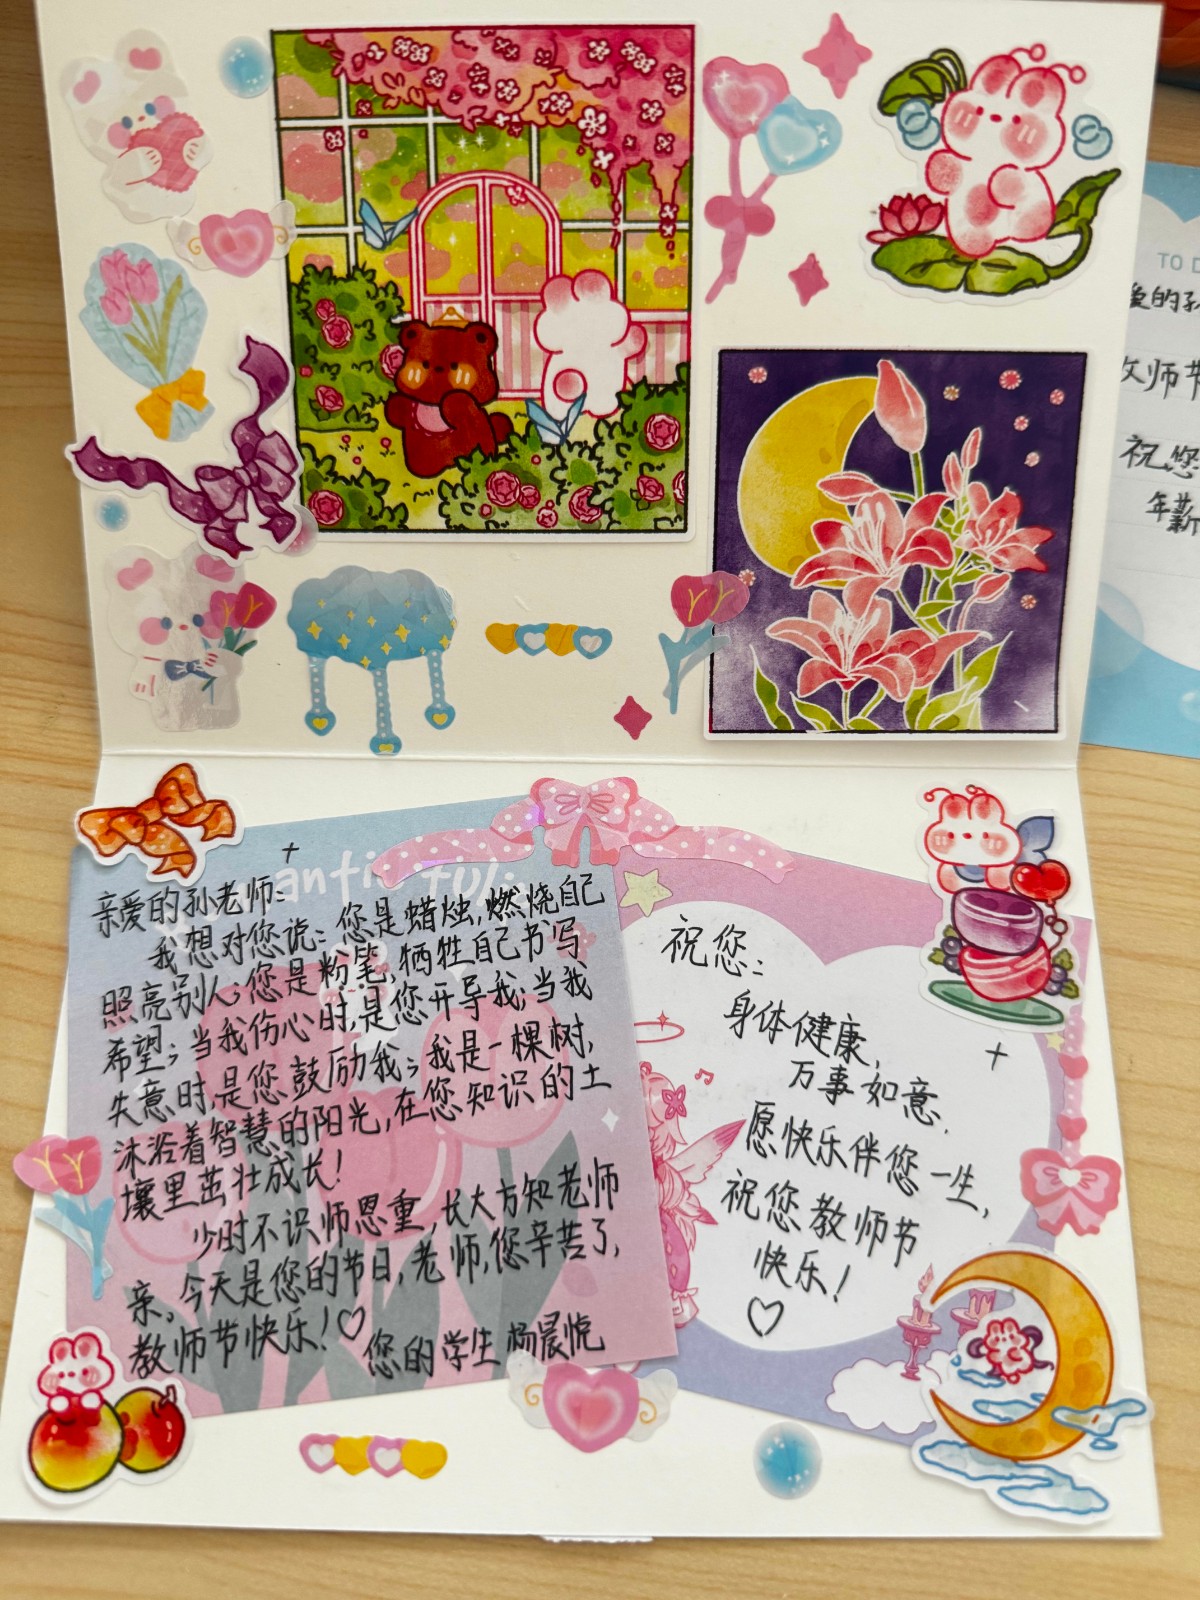 亲爱的孙老师:
我想对您说:您是蜡烛,燃烧自己
照亮别人;您是粉笔,牺牲自己书写
希望;当我伤心时,是您开导我;当我
失意时,是您鼓励我;我是一棵树,
沐浴着智慧的阳光,在您知识的土
壤里茁壮成长!
少时不识师恩重,长大方知老师
亲。今天是您的节日,老师,您辛苦了,
教师节快乐!♡
您的学生杨晨悦
祝您:
身体健康,
万事如意.
愿快乐伴您一生,
祝您教师节
快乐!
♡
TO
爱的孙
师节
祝您
年薪